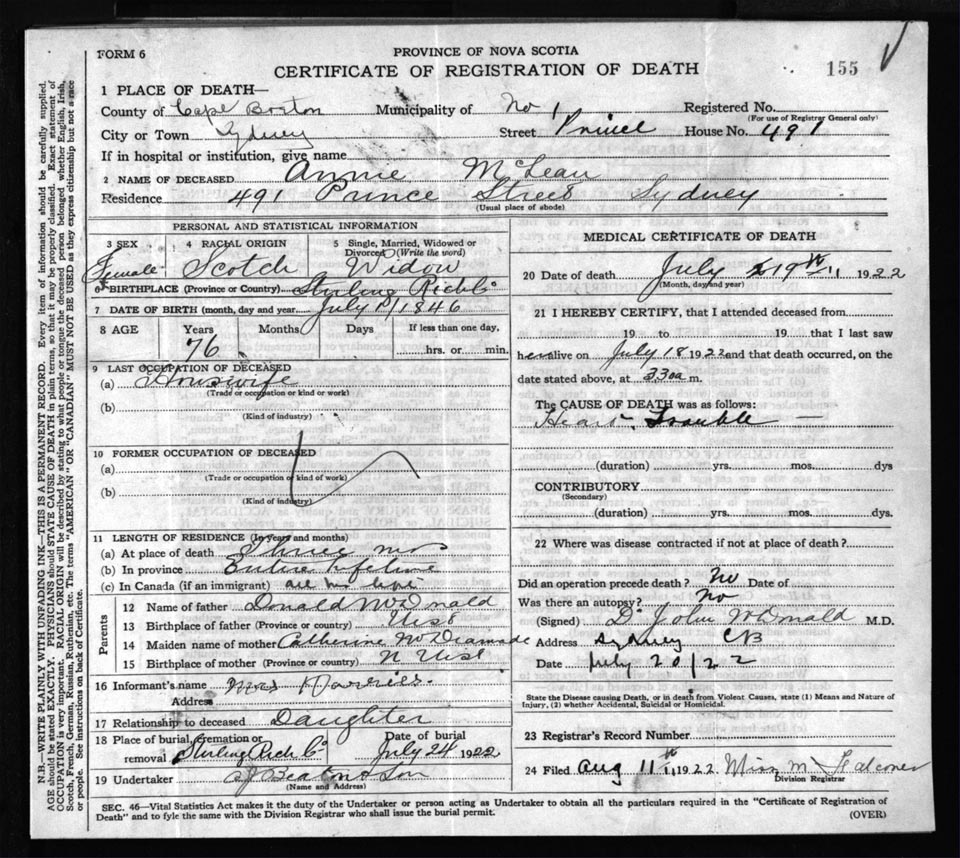 FORM 6
PROVINCE OF NOVA SCOTIA
CERTIFICATE OF REGISTRATION OF DEATH
155
1 PLACE OF DEATH—
County of Cape Breton Municipality of No 1 Registered No.
(For use of Registrar General only)
City or Town Sydney Street Prince House No. 491
If in hospital or institution, give name
2 NAME OF DECEASED Annie McLean
Residence 491 Prince Street Sydney
(Usual place of abode)
PERSONAL AND STATISTICAL INFORMATION
3 SEX 4 RACIAL ORIGIN 5 Single, Married, Widowed or Divorced (Write the word)
Female Scotch Widow
6 BIRTHPLACE (Province or Country) Stirling Rich Co
7 DATE OF BIRTH (month, day and year) July 1/1846
8 AGE Years Months Days If less than one day,
76 hrs. or min.
9 LAST OCCUPATION OF DECEASED
(a) Houswife
(Trade or occupation or kind or work)
(b)
(Kind of industry)
10 FORMER OCCUPATION OF DECEASED
(a)
(Trade or occupation or kind of work)
(b)
(Kind of industry)
11 LENGTH OF RESIDENCE (In years and months)
(a) At place of death Three mos
(b) In province Entire lifetime
(c) In Canada (if an immigrant) all her life
Parents
12 Name of father Donald McDonald
13 Birthplace of father (Province or country) Uist
14 Maiden name of mother Catherine
15 Birthplace of mother (Province or country) N Uist
16 Informant's name Mrs
Address
17 Relationship to deceased Daughter
18 Place of burial, cremation or removal Stirling Rich Co Date of burial July 24 1922
19 Undertaker Beaton & Son
(Name and Address)
MEDICAL CERTIFICATE OF DEATH
20 Date of death July 19th 1922
(Month, day and year)
21 I HEREBY CERTIFY, that I attended deceased from
19 to 19 that I last saw
her alive on July 18 1922 and that death occurred, on the
date stated above, at 3 30 a m.
The CAUSE OF DEATH was as follows:
Heart Trouble
(duration) yrs. mos. dys
CONTRIBUTORY
(Secondary)
(duration) yrs. mos. dys.
22 Where was disease contracted if not at place of death?
Did an operation precede death? No Date of
Was there an autopsy? No
(Signed) Dr John McDonald M.D.
Address Sydney CB
Date July 20/22
State the Disease causing Death, or in death from Violent Causes, state (1) Means and Nature of
Injury, (2) whether Accidental, Suicidal or Homicidal.
23 Registrar's Record Number
24 Filed Aug 11th 1922 Miss M Falconer
Division Registrar
SEC. 46—Vital Statistics Act makes it the duty of the Undertaker or person acting as Undertaker to obtain all the particulars required in the "Certificate of Registration of
Death" and to fyle the same with the Division Registrar who shall issue the burial permit.
(OVER)
N.B.—WRITE PLAINLY WITH UNFADING INK—THIS IS A PERMANENT RECORD. Every item of information should be carefully supplied.
AGE should be stated EXACTLY. PHYSICIANS should STATE CAUSE OF DEATH in plain terms, so that it may be properly classified. Exact statement of
OCCUPATION is very important. RACIAL ORIGIN will be described by stating to what people or tongue the deceased person belonged whether English, Irish,
Scotch, French, German, Russian, Ruthenian, etc. The terms "AMERICAN" OR "CANADIAN" MUST NOT BE USED as they express citizenship but not a race
or people. See instructions on back of Certificate.